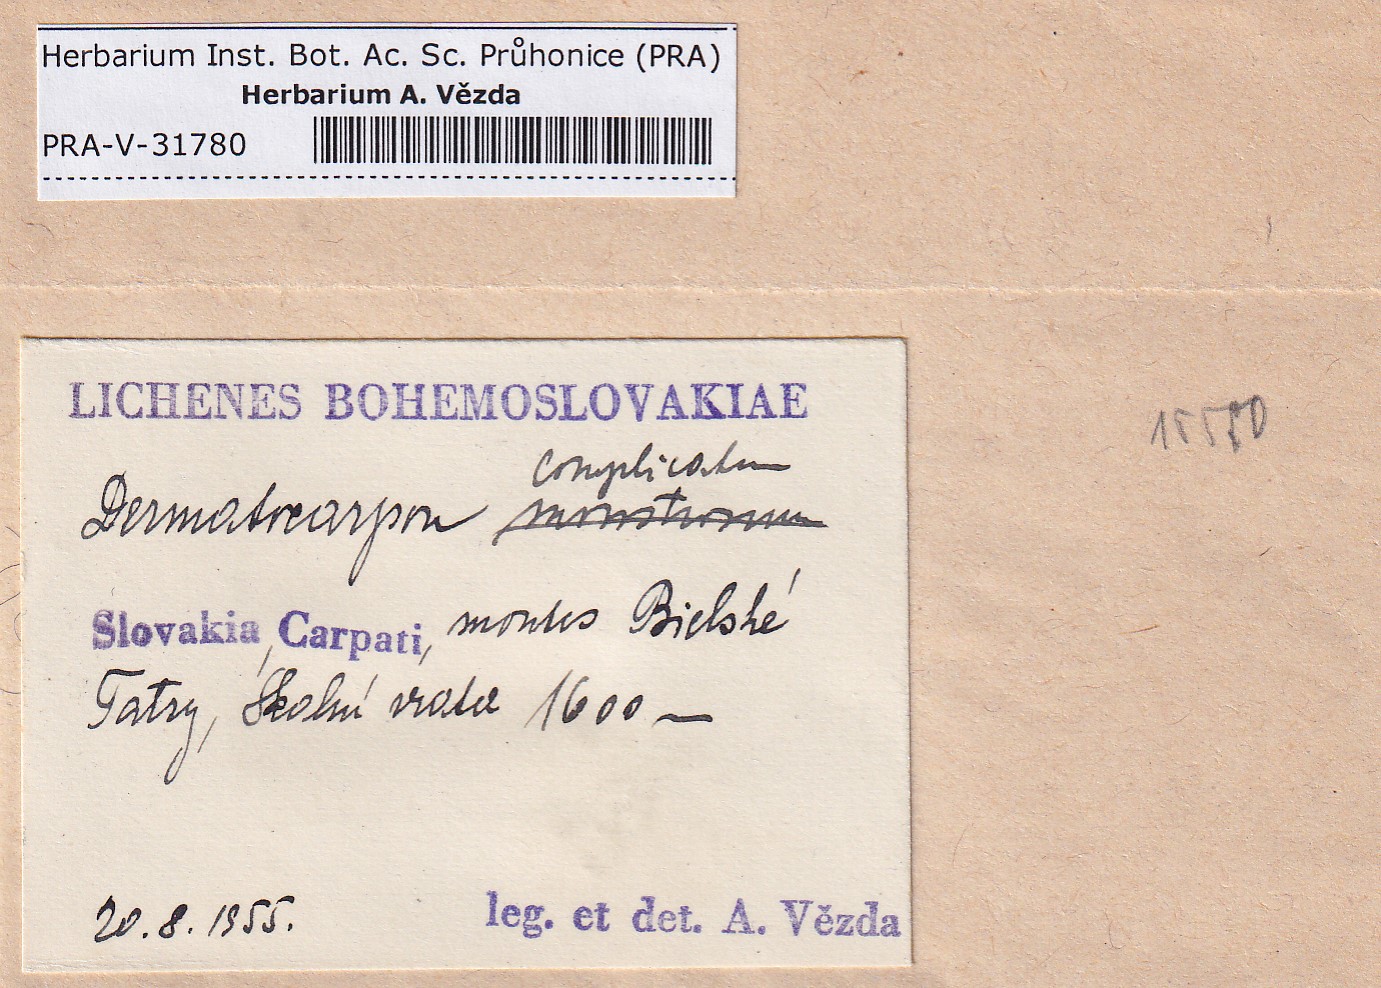 Herbarium Inst. Bot. Ac. Sc. Průhonice (PRA)
Herbarium A. Vězda
PRA-V-31780
LICHENES BOHEMOSLOVAKIAE
complicatum
Dermatocarpon monstrosum
Slovakia, Carpati, montes Bielské
Tatry, Skalní vrata 1600 —
20.8.1955.
leg. et det. A. Vězda